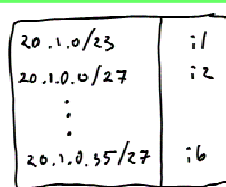 20.1.0/23 i1
20.1.0.0/27 i2
:
:
20.1.0.55/27 i6